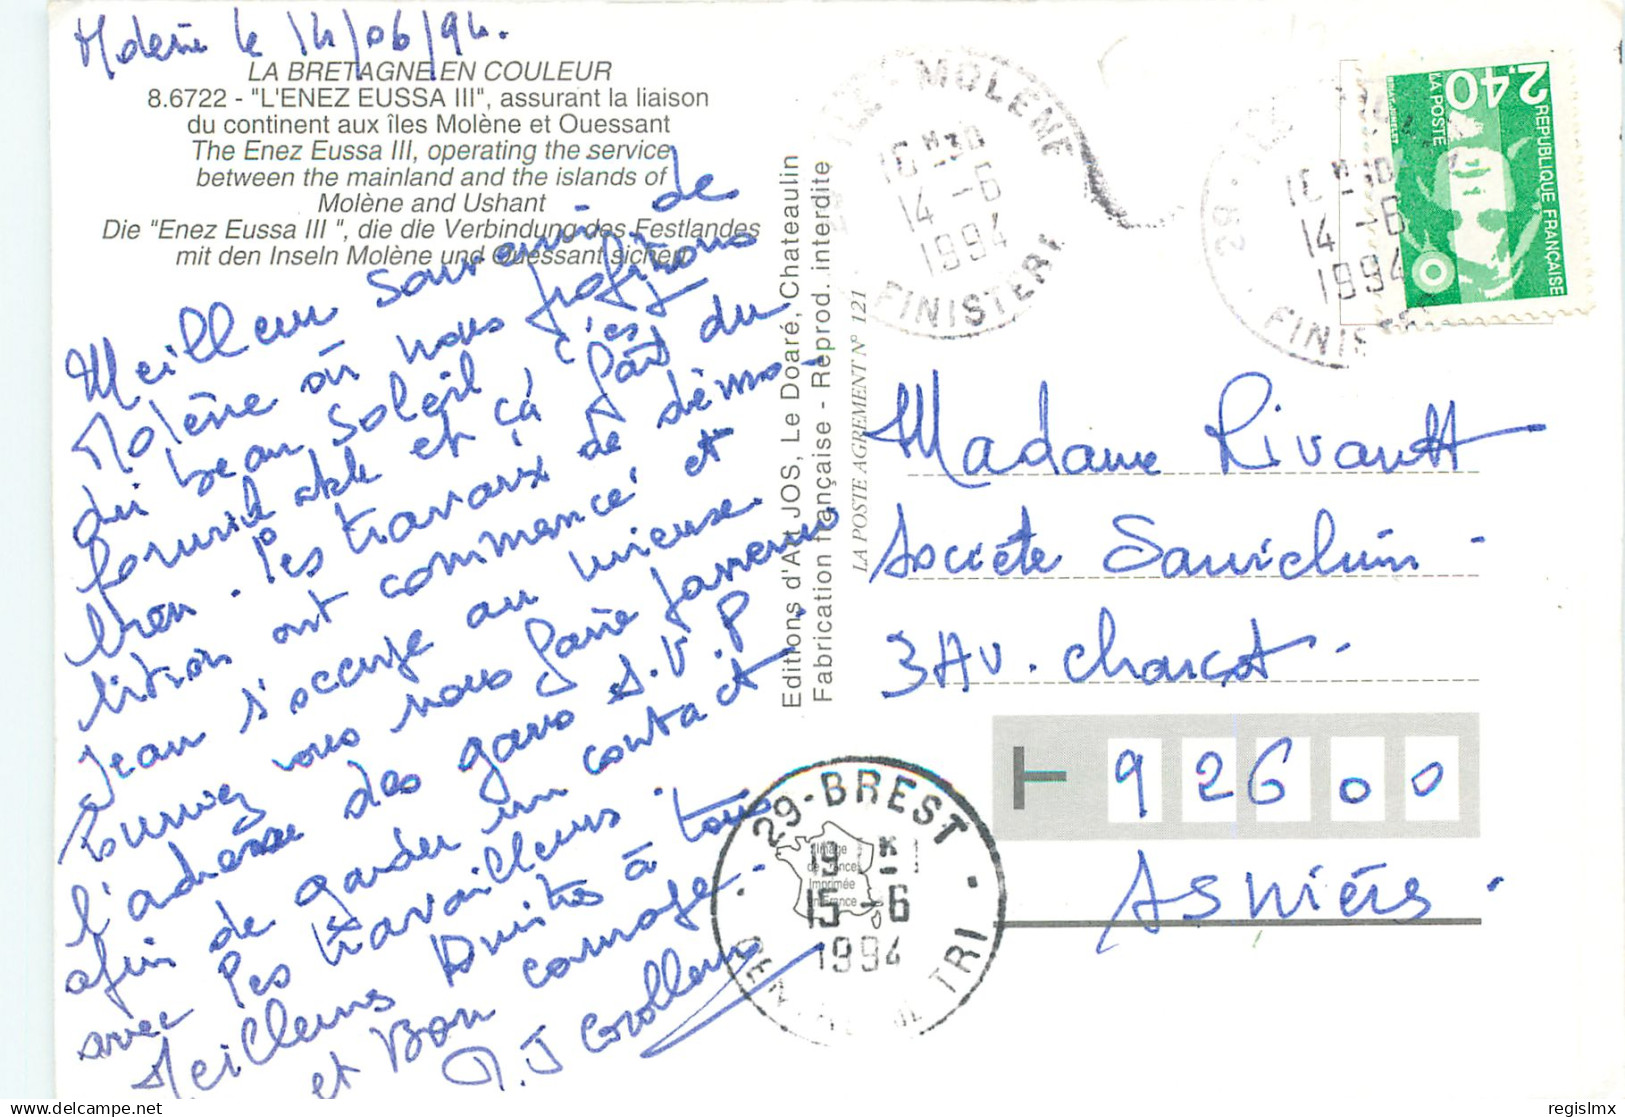 Molène le 14/06/94.
LA BRETAGNE EN COULEUR
8.6722 - "L'ENEZ EUSSA III", assurant la liaison
du continent aux îles Molène et Ouessant
The Enez Eussa III, operating the service
between the mainland and the islands of
Molène and Ushant
Die "Enez Eussa III ", die die Verbindung des Festlandes
mit den Inseln Molène und Ouessant sichert
Meilleur souvenir de
Molène où nous profitons
du beau soleil, c'est
formidable et çà fait du
bien. les travaux de démo-
lition ont commencé et
Jean s'occupe au mieux.
Pourriez vous nous faire parvenir
l'adresse des gars S.V.P.
afin de garder un contact
avec les travailleurs.
Meilleurs à tous
et Bon courage.
Editions d'Art JOS, Le Doaré, Chateaulin
Fabrication française - Reprod. interdite
LA POSTE AGREMENT N° 121
29 - ILE - MOLENE
16 H30
14 -6
1994
FINISTERE
29 - ILE
16 H30
14 -6
1994
FINISTE
2,40
LA POSTE
REPUBLIQUE FRANÇAISE
Madame Rivautt
Société
3 Av. Charcot.
92600
Asnières.
29-BREST
19 H
15 -6
1994
CENTRE DE TRI
Image
de France
Imprimée
en France
regislmx